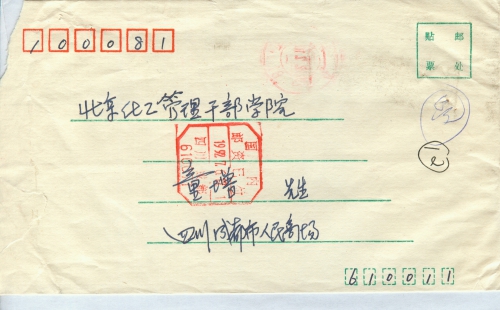 100081
點 郵
票 處
北京化工管理干部学院
童增 先生
四川成都市人民商场
610011